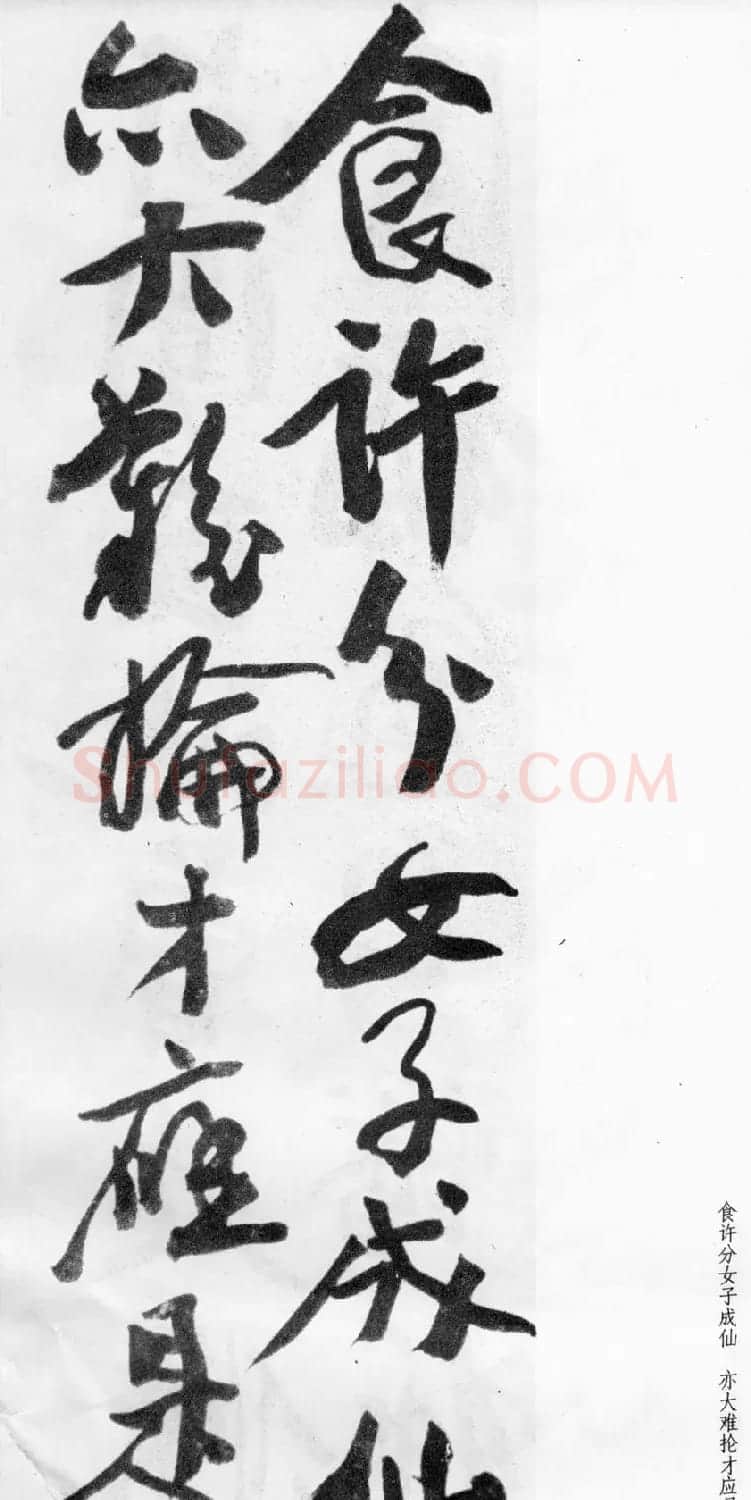 食許分女子成仙
亦大難掄才應是
食许分女子成仙 亦大难抡才应是
Shufaziliao.COM